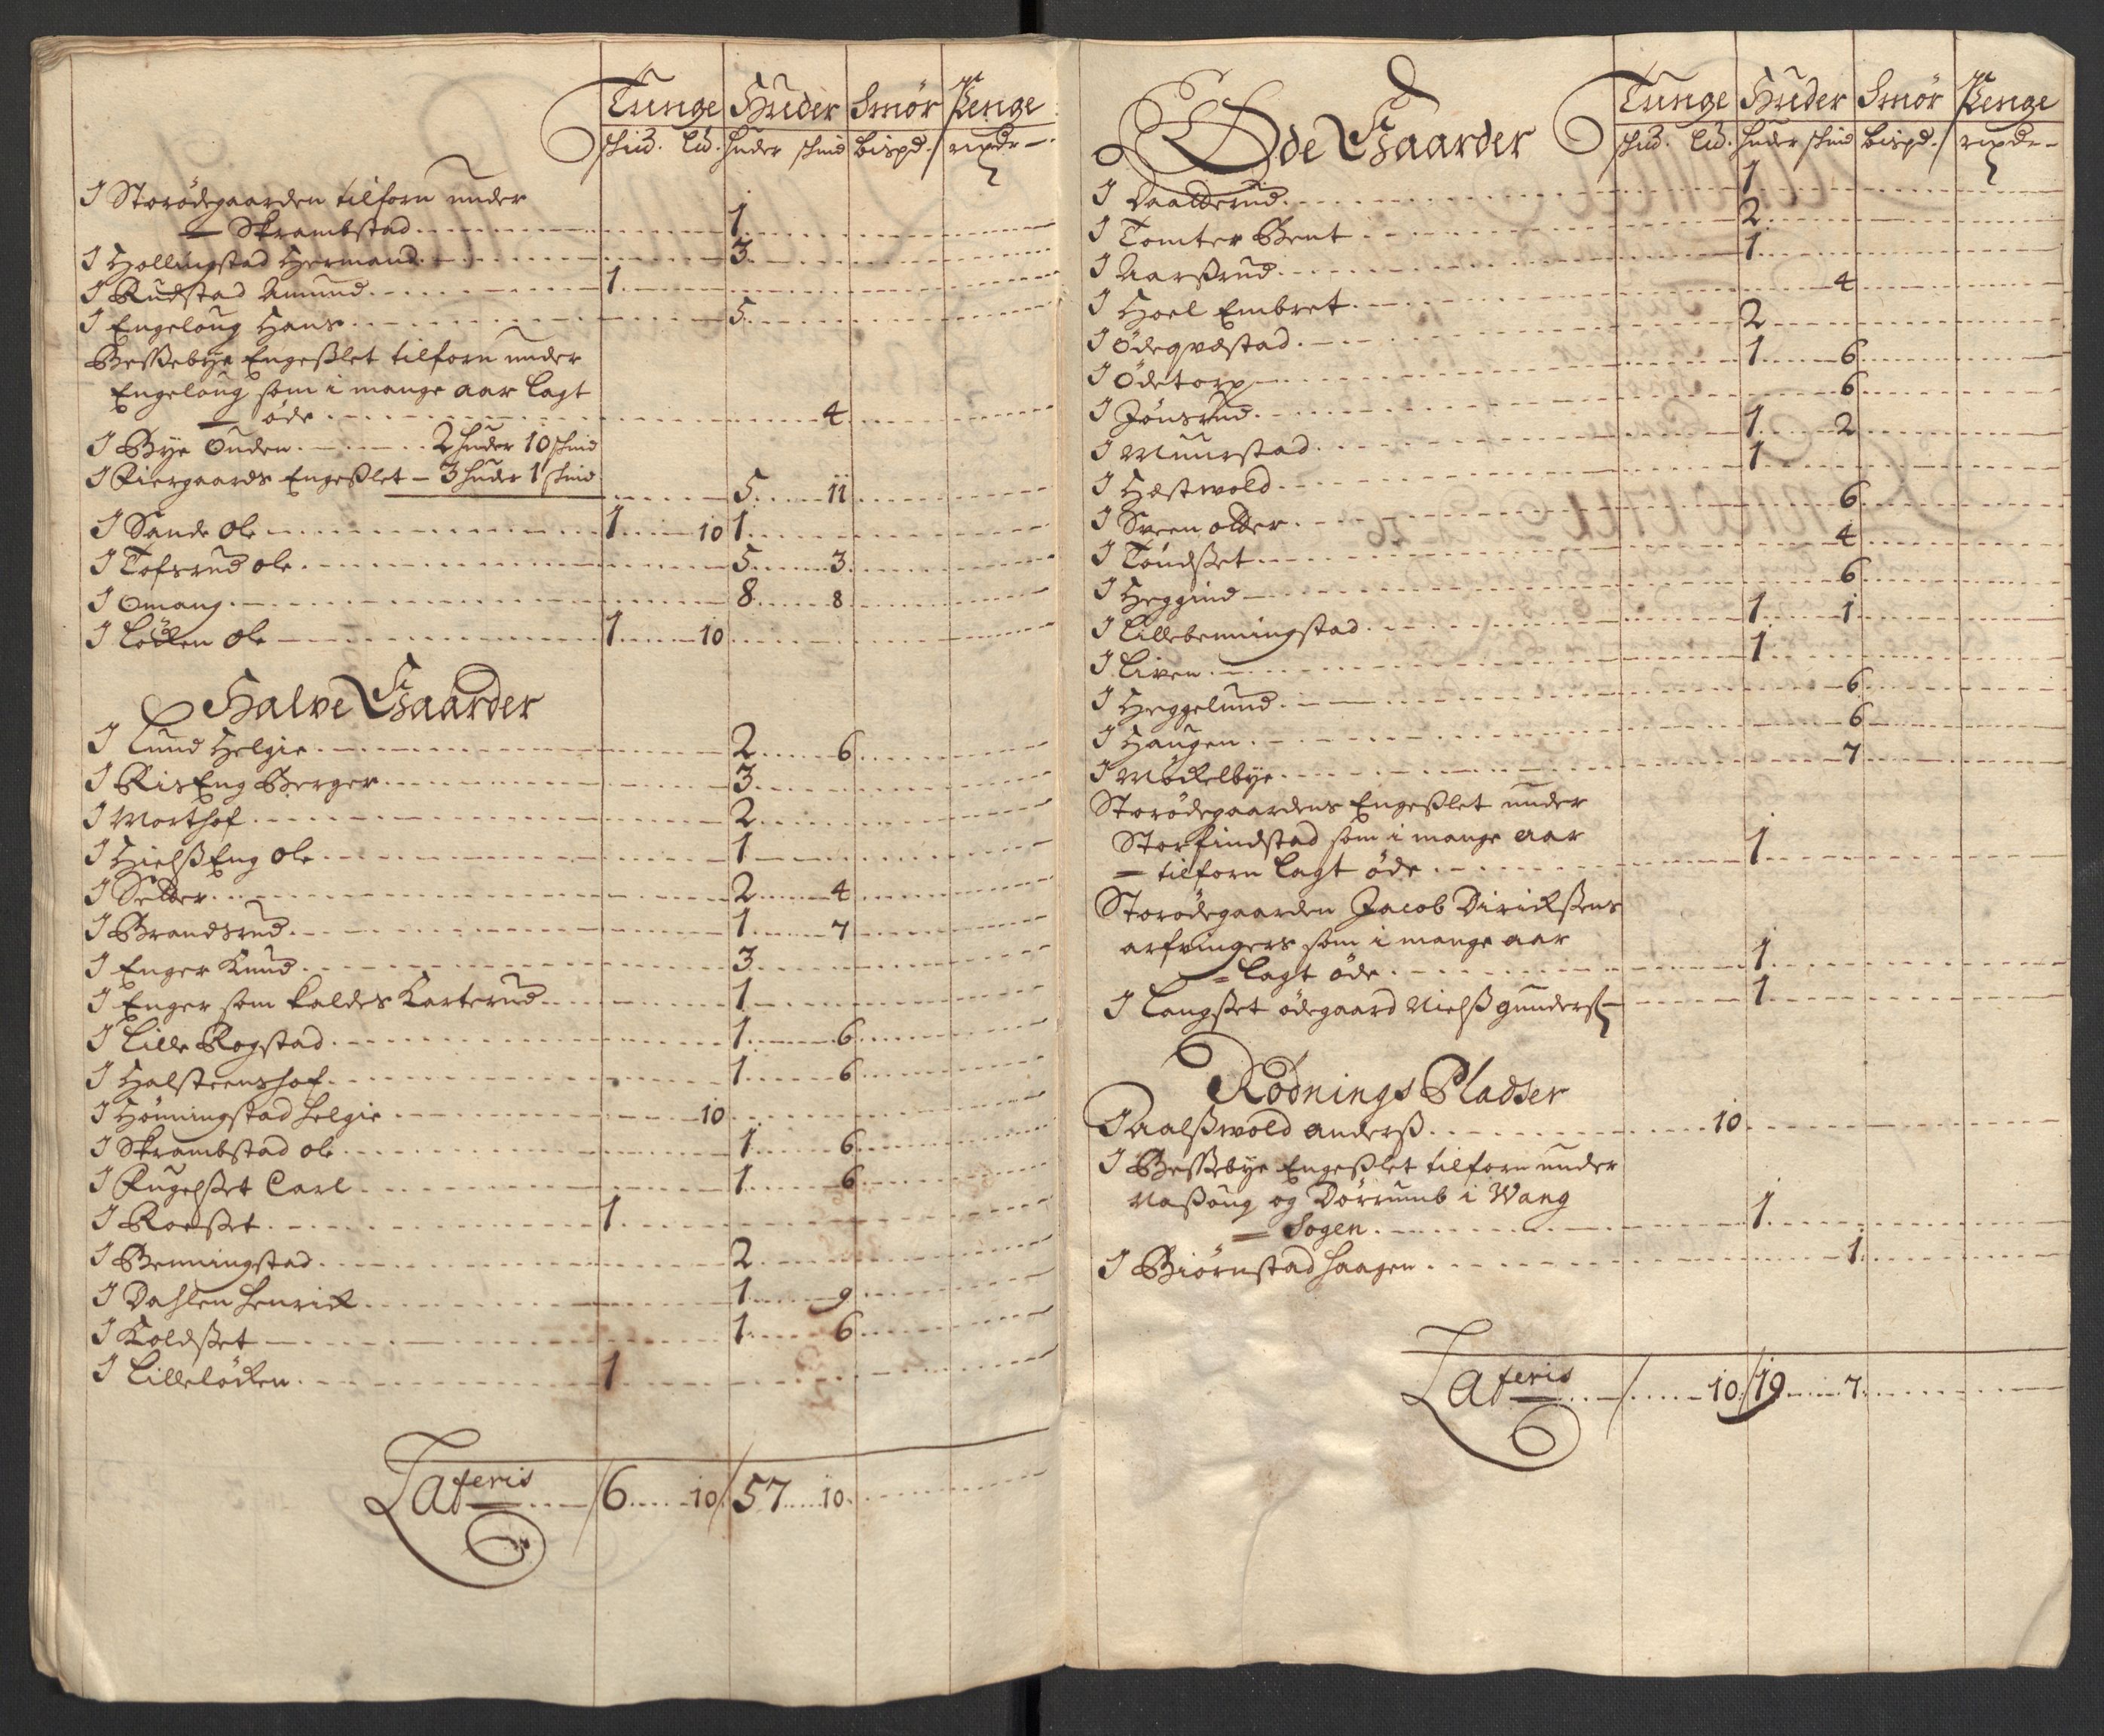 Tunge Huder Smör Penge
schid. Lid. huder schind bispd. rixdr
I Storödegaarden tilforn under
Skrambstad 1
I Hollingstad Hermand 3
I Rudstad Amund 1
I Engeloug Hans 5
Bessebye Engeßlet tilforn under
Engeloug som i mange aar lagt
öde 4
I Bye Ouden 2 huder 10 schind
I Kiergaards Engeßlet - 3 huder 1 schind
5 11
I Sande Ole 1 10 1
I Tofsrud ole 5 3
I Omang 8 8
I Löcken Ole 1 10
Halve Gaarder
I Lund Helgie 2 6
I RisEng Berger 3
I Morthof 2
I HielßEng Ole 1
I Setter 2 4
I Brandsrud 1 7
I Enger Knud 3
I Enger som kaldes Karterud 1
I Lille Rogstad 1 6
I Halsteenshof 1 6
I Hönningstad helgie 10
I Skrambstad Ole 1 6
I Fugelßet Carl 1 6
I Roeßet 1
I Benningstad 2
I Dahlen henrich 1 9
I Koldßet 1 6
I Lillelöcken 1
Lateris 6 10 57 10
Öde Gaarder
Tunge Huder Smör Penge
schid. Lid. huder schind bispd. rixdr
I Daatterud 1
I Tomter Bent 2
I Aarßrud 1
I Hoel Embret 4
I Ödeqvestad 2
I Ödetorp 1 6
I Jönsrud 6
I Muurstad 1 2
I Hæstwold 1
I Sveen otter 6
I Töndßet 4
I Heggind 6
I Lillebenningstad 1 1
I Liven 1
I Heggelund 6
I Haugen 6
I Möckelbye 7
Storödegaardens Engeßlet under
Storfindstad som i mange Aar
tilforn lagt öde 1
Storödegaarden Jacob Dirichßens
arfvingers som i mange aar
lagt öde 1
I Langßet ödegaard Nielß gunders 1
Rödnings Pladser
I Aalßwold anderß 10
I Bessebye Engeßlet tilforn under
Naßoug og Dörrumb i Wang
Sogen 1
I Biörnstad haagen 1
Lateris 10 19 7